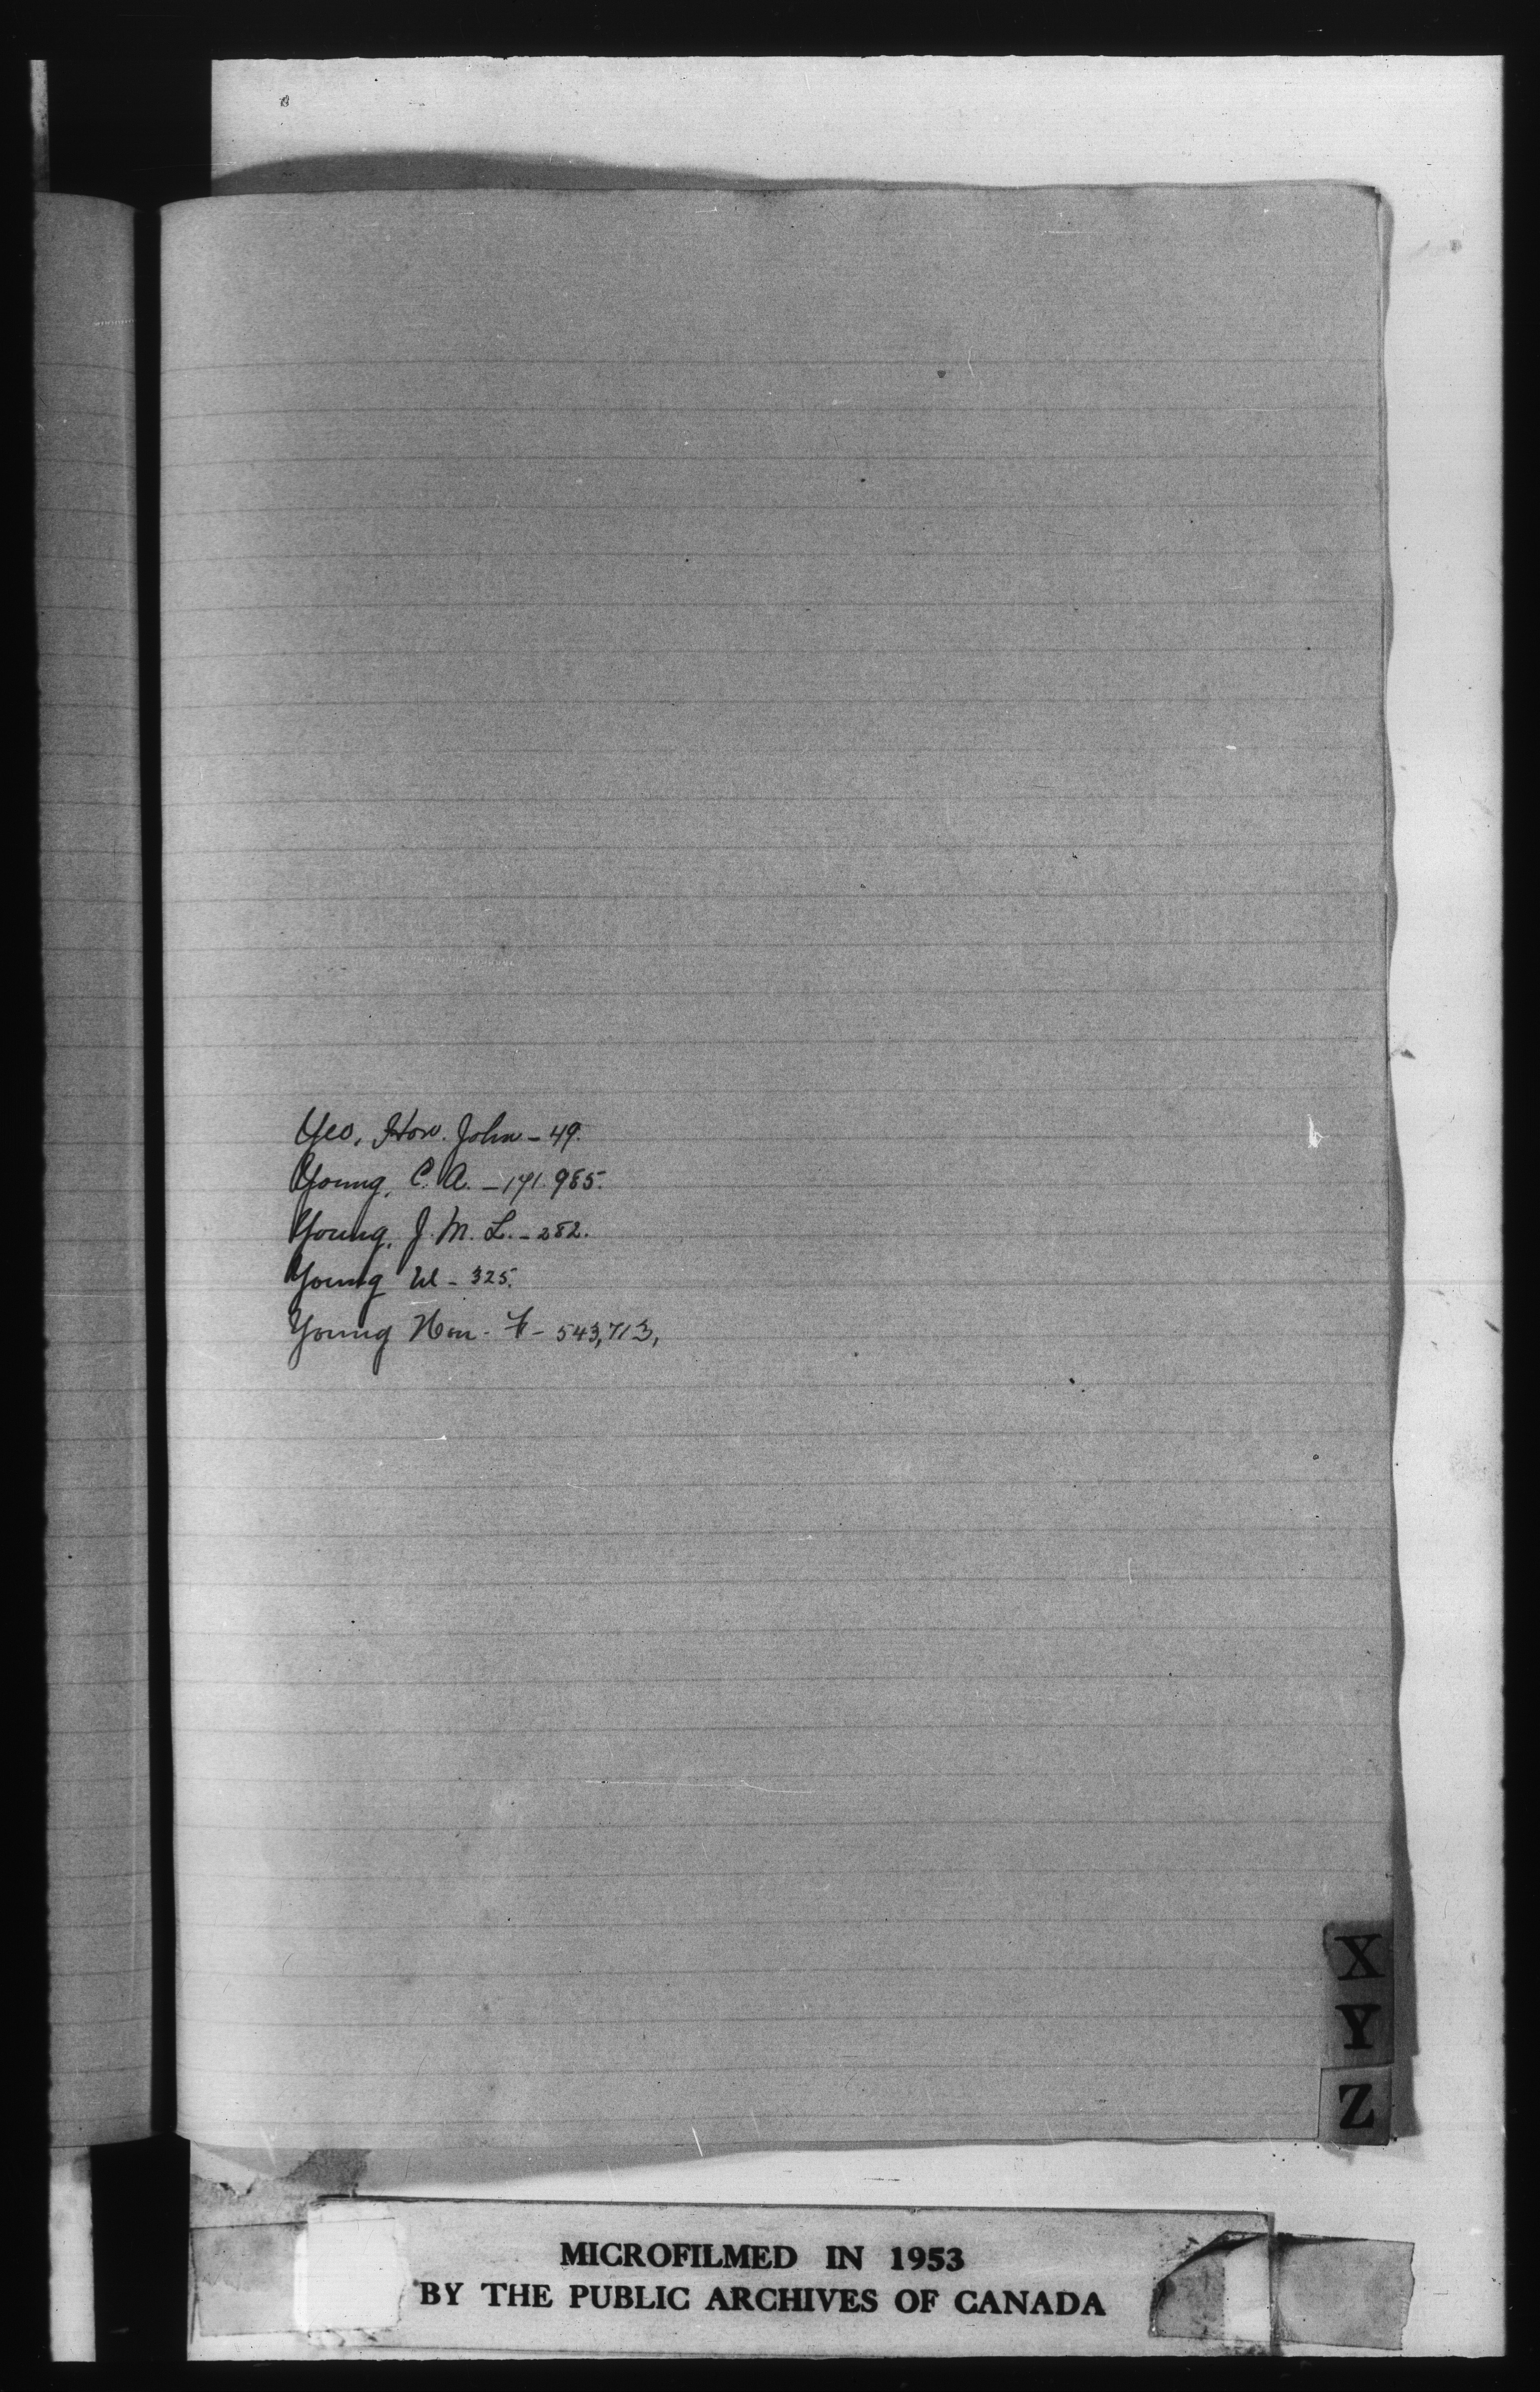 Yeo, Hon. John - 49.
Young, C. A. - 171. 985.
Young, J. M. L. - 282.
Young W - 325.
Young Hon. F - 543, 713,
X
Y
Z
MICROFILMED IN 1953
BY THE PUBLIC ARCHIVES OF CANADA